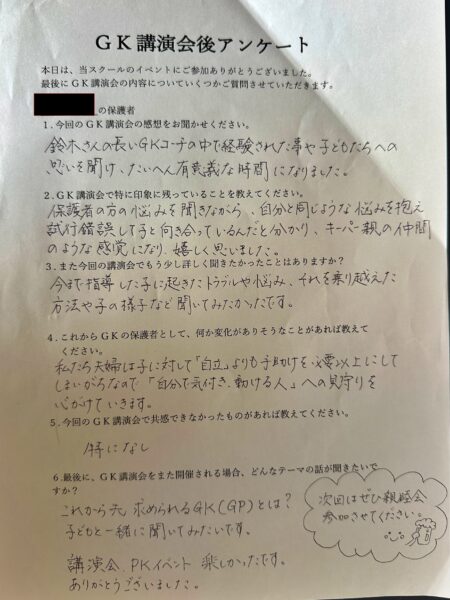 GK講演会後アンケート
本日は、当スクールのイベントにご参加ありがとうございました。
最後にGK講演会の内容についていくつかご質問させていただきます。
の保護者
1.今回のGK講演会の感想をお聞かせください。
鈴木さんの長いGKコーチの中で経験された事や子どもたちへの
思いを聞け、たいへん有意義な時間になりました。
2.GK講演会で特に印象に残っていることを教えてください。
保護者の方の悩みを聞きながら、自分と同じような悩みを抱え
試行錯誤して子と向き合っているんだと分かり、キーパー親の仲間
のような感覚になり、嬉しく思いました。
3.また今回の講演会でもう少し詳しく聞きたかったことはありますか?
今まで指導した子に起きたトラブルや悩み、それを乗り越えた
方法や子の様子など聞いてみたかったです。
4.これからGKの保護者として、何か変化がありそうなことがあれば教えて
ください。
私たち夫婦は子に対して「自立」よりも手助けを必要以上にして
しまいがちなので「自分で気付き、動ける人」への見守りを
心がけていきます。
5.今回のGK講演会で共感できなかったものがあれば教えてください。
特になし
6.最後に、GK講演会をまた開催される場合、どんなテーマの話が聞きたいで
すか?
これから先 求められるGK(GP)とは?
子どもと一緒に聞いてみたいです。
講演会、PKイベント 楽しかったです。
ありがとうございました。
次回はぜひ親睦会
参加させてください。